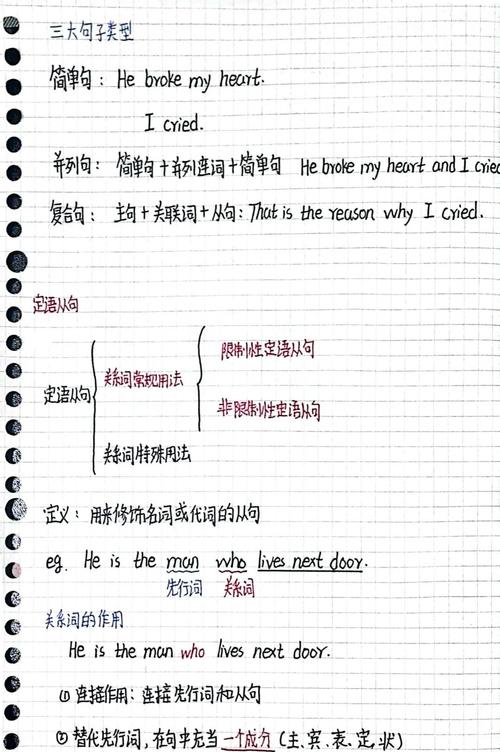 三大句子类型
简单句：He broke my heart.
I cried.
并列句：简单句+并列连词+简单句 He broke my heart and I cried
复合句：主句+关联词+从句：That is the reason why I cried.
定语从句
定语从句
关系词常规用法
限制性定语从句
非限制性定语从句
关系词特殊用法
定义：用来修饰名词或代词的从句
eg. He is the man who lives next door.
先行词 关系词
关系词的作用
He is the man who lives next door.
①连接作用：连接先行词和从句
②替代先行词，在句中充当一个成分（主、宾、表、定、状）